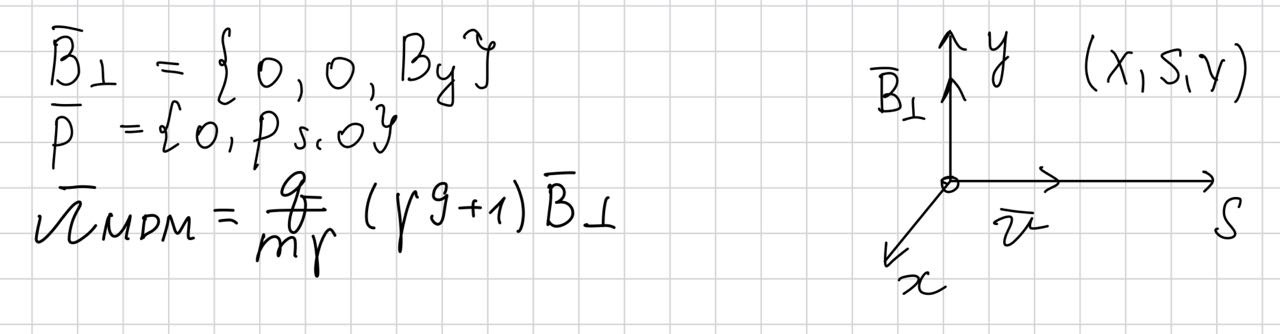 B̄⊥ = {0, 0, By}
p̄ = {0, ps, 0}
Ω̄MDM = q/mγ (γG+1) B̄⊥
y (x, s, y)
B̄⊥
v̄ s
x